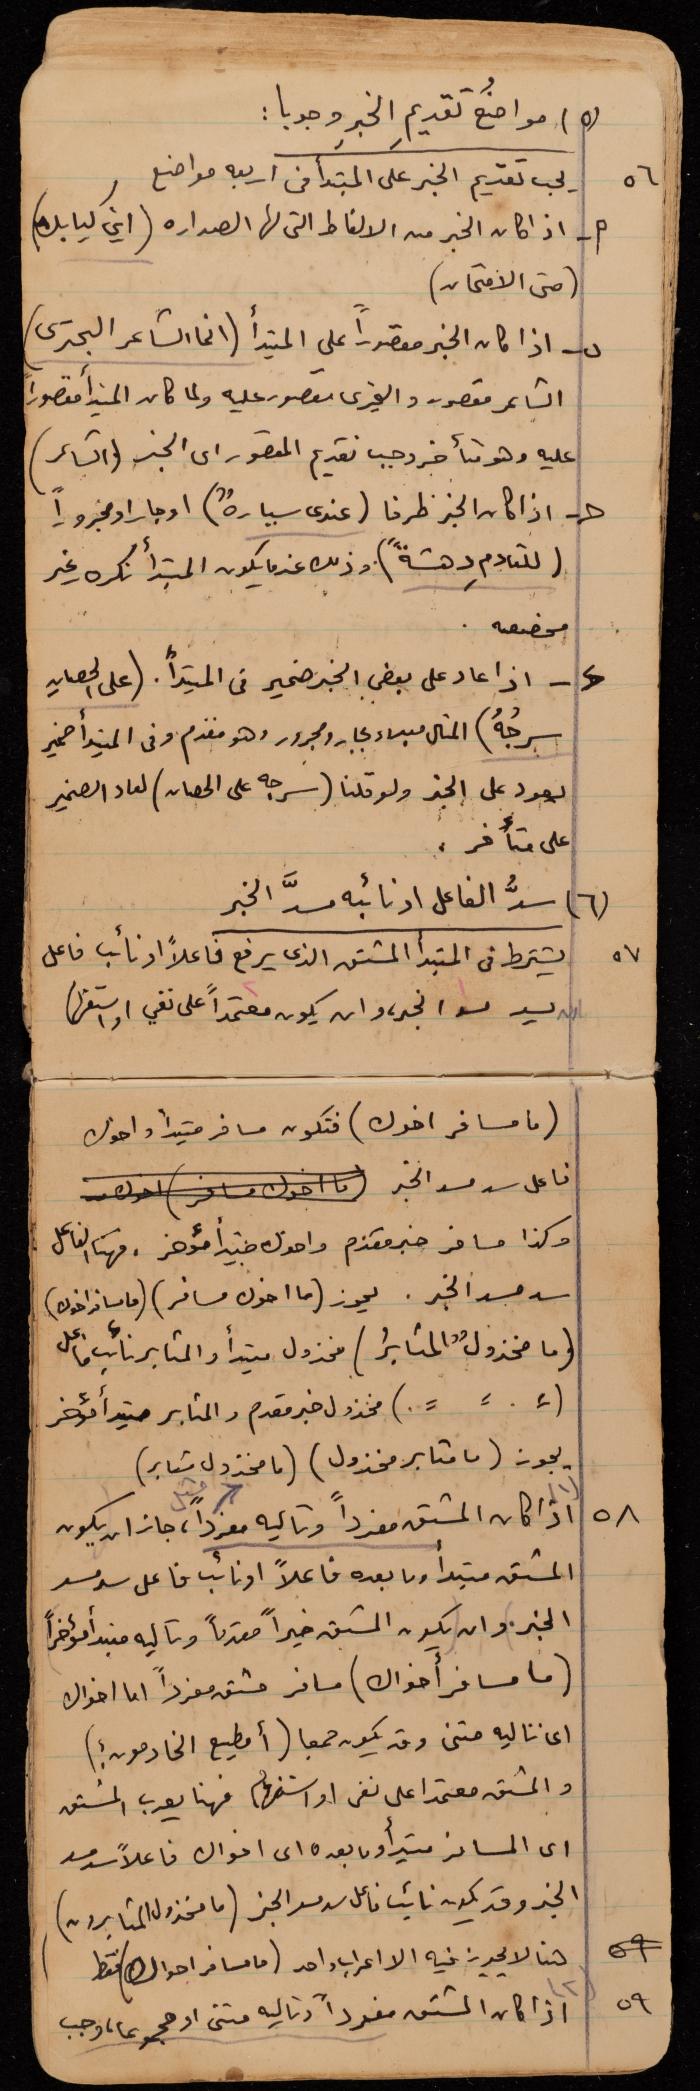 (٥) مواضعُ تقديمِ الخبرِ وجوبا :
٥٦ يجب تقديم الخبر على المبتدأ في اربعه مواضع
أ- اذا كان الخبر من الالفاظ التى لها الصداره (اين كتابك)
(متى الامتحان)
ب- اذا كان الخبر مقصوراً على المبتدأ (انما الشاعر البحترى)
الشاعر مقصور والبحترى مقصور عليه ولما كان المبتدأ مقصوراً
عليه وهو متأخر وجب تقديم المقصور اى الخبر (الشاعر)
حـ- اذا كان الخبر ظرفا (عندى سيارةٌ) او جارا ومجروراً
(للقادمِ دهشةٌ). وذلك عندما يكون المبتدأ نكره غير
مخصصه .
د- اذا عاد على بعض الخبر ضمير في المبتدأ. (على الحصانِ
سرجُهُ) المثال مبدوء بجار ومجرور وهو مقدم وفى المبتدأ ضمير
يعود على الخبر ولو قلنا (سرجه على الحصان) لعاد الضمير
على متأخر .
(٦) سدُّ الفاعل او نائبه مسدَّ الخبر
٥٧ يشترط في المبتدأ المشتق الذى يرفع فاعلاً او نائب فاعل
ان يسد مسد الخبر، وان يكون معتمداً على نفي او استفهام
(ما مسافر اخوك) فتكون مسافر مبتدأ و اخوك
فاعل سد مسد الخبر (ما اخوك مسافر) اخوك
وكذا مسافر خبر مقدم واخوك مبتدأ مؤخر . فهنا الفاعل
سد مسد الخبر . يجوز (ما اخوك مسافر) (ما مسافر اخوك)
(ما مخذولٌ المثابرُ) مخذول مبتدأ والمثابر نائب فاعل
(= . = = .) مخذول خبر مقدم والمثابر مبتدأ مؤخر
يجوز (ما مثابر مخذول) (ما مخذول مثابر)
٥٨ (١) اذا كان المشتق مفرداً وتاليه مفرداً، جاز ان يكون
المشتق مبتدأ وما بعده فاعلاً او نائب فاعل سد مسد
الخبر. وان يكون المشتق خبراً مقدماً وتاليه مبتدأ مؤخراً
(ما مسافر أخواك) مسافر مشتق مفرداً اما اخواك
اى تاليه مثنى وقد يكون جمعا (أ مطيع الخادمون؟)
والمشتق معتمدا على نفى او استفهام فهنا يعرب المشتق
اى المسافر مبتدأ وما بعده اى اخواك فاعلاً سد مسد
الخبر وقد يكون نائب فاعل سد مسد الخبر (ما مخذول المثابرون)
٥٩ هنا لا يجوز فيه الا اعراب واحد (ما مسافر اخواك) فقط
٥٩ (٢) اذا كان المشتق مفرداً وتاليه مثنى او مجموعا، وجب